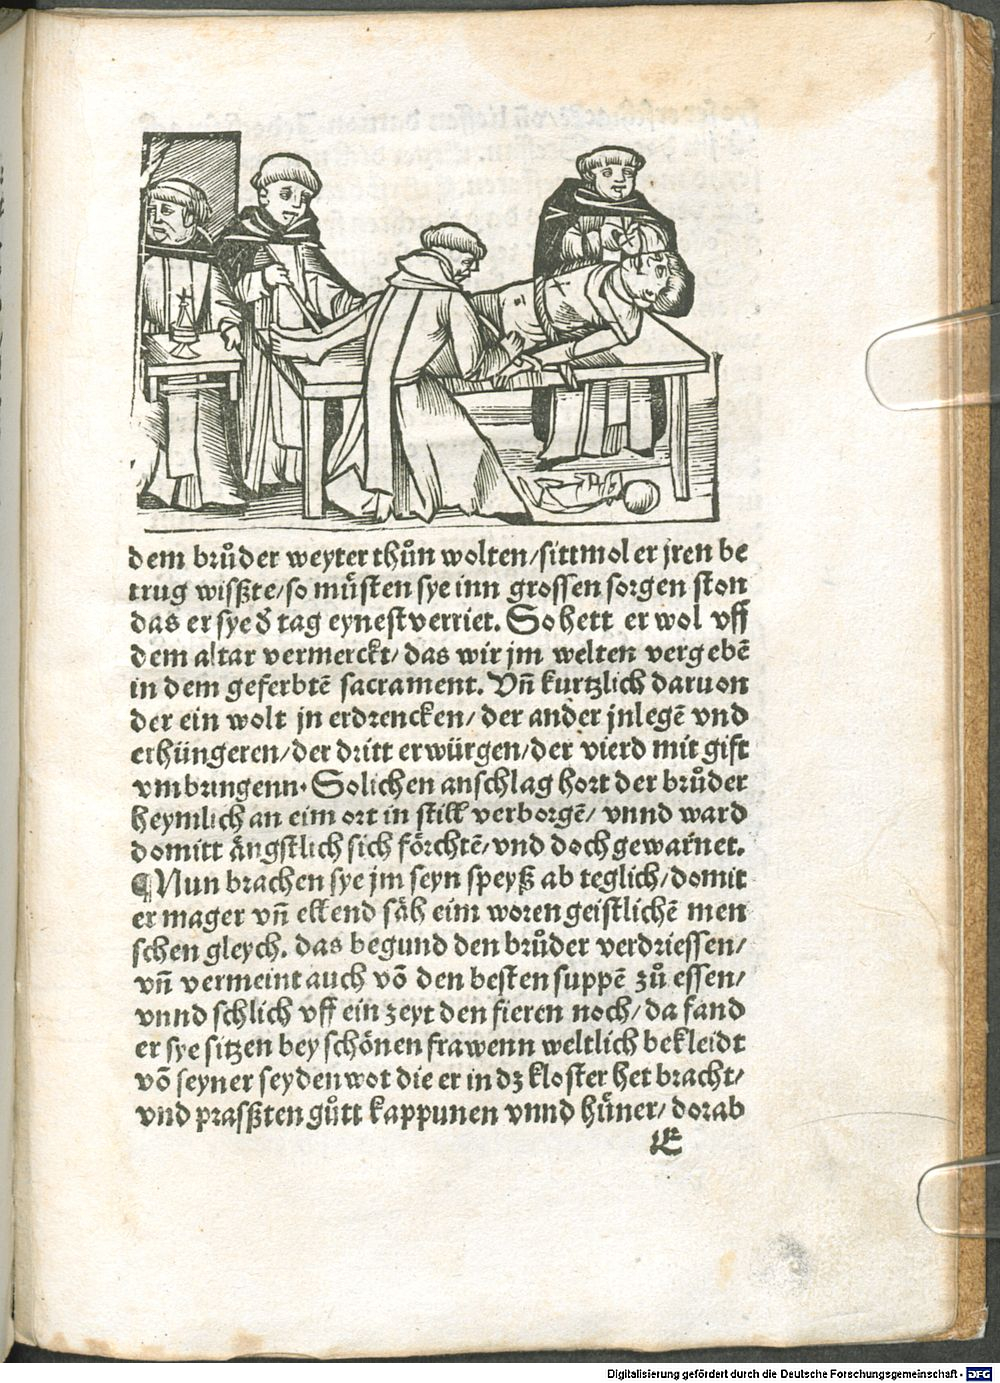 dem brůder weyter thůn wolten/sittmol er jren be
trug wißte/so můsten sye inn grossen sorgen ston
das er sye d᷑ tag eynest verriet. So hett er wol vff
dem altar vermerckt/das wir jm welten vergebē
in dem geferbtē sacrament. Vn̄ kurtzlich daruon
der ein wolt jn erdrencken/der ander jnlegē vnd
erhüngeren/der dritt erwürgen/der vierd mit gift
vmbringenn. Solichen anschlag hort der brůder
heymlich an eim ort in still verborgē/vnnd ward
domitt ängstlich sich förchtē/vnd doch gewarnet.
¶Nun brachen sye jm seyn speyß ab teglich/domit
er mager vn̄ ellend säh eim woren geistlichē men
schen gleych. das begund den brůder verdriessen/
vn̄ vermeint auch vō den besten suppē zů essen/
vnnd schlich vff ein zeyt den fieren noch/da fand
er sye sitzen bey schönen frawenn weltlich bekleidt
vō seyner seyden wot die er in dz kloster het bracht/
vnd praßten gůtt kappunen vnnd hüner/dorab
E
Digitalisierung gefördert durch die Deutsche Forschungsgemeinschaft - DFG